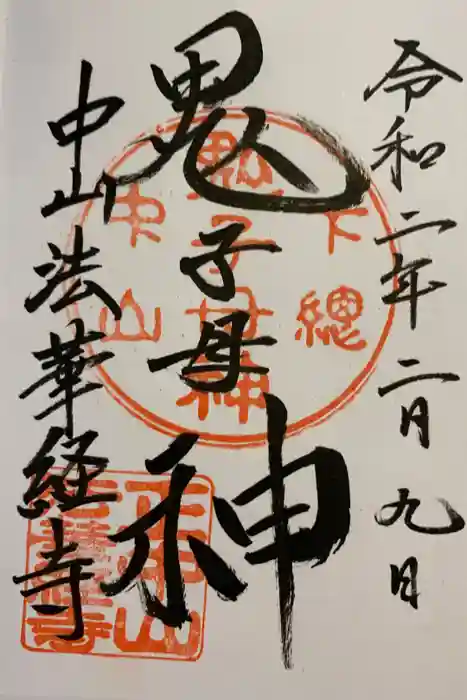 令和二年二月九日
鬼子母神
中山法華経寺
下總
鬼子母神
中山
正中山